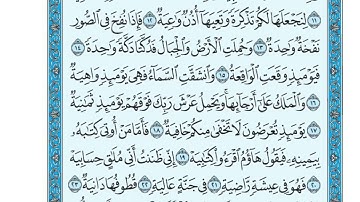 ١١ لِنَجْعَلَهَا لَكُمْ تَذْكِرَةً وَتَعِيَهَا أُذُنٌ وَاعِيَةٌ ١٢ فَإِذَا نُفِخَ فِي الصُّورِ
نَفْخَةٌ وَاحِدَةٌ ١٣ وَحُمِلَتِ الْأَرْضُ وَالْجِبَالُ فَدُكَّتَا دَكَّةً وَاحِدَةً ١٤
فَيَوْمَئِذٍ وَقَعَتِ الْوَاقِعَةُ ١٥ وَانشَقَّتِ السَّمَاءُ فَهِيَ يَوْمَئِذٍ وَاهِيَةٌ
١٦ وَالْمَلَكُ عَلَىٰ أَرْجَائِهَا وَيَحْمِلُ عَرْشَ رَبِّكَ فَوْقَهُمْ يَوْمَئِذٍ ثَمَٰنِيَةٌ
١٧ يَوْمَئِذٍ تُعْرَضُونَ لَا تَخْفَىٰ مِنكُمْ خَافِيَةٌ ١٨ فَأَمَّا مَنْ أُوتِيَ كِتَٰبَهُ
بِيَمِينِهِ فَيَقُولُ هَاؤُمُ اقْرَءُوا كِتَٰبِيَهْ ١٩ إِنِّي ظَنَنتُ أَنِّي مُلَٰقٍ حِسَابِيَهْ
٢٠ فَهُوَ فِي عِيشَةٍ رَّاضِيَةٍ ٢١ فِي جَنَّةٍ عَالِيَةٍ ٢٢ قُطُوفُهَا دَانِيَةٌ ٢٣